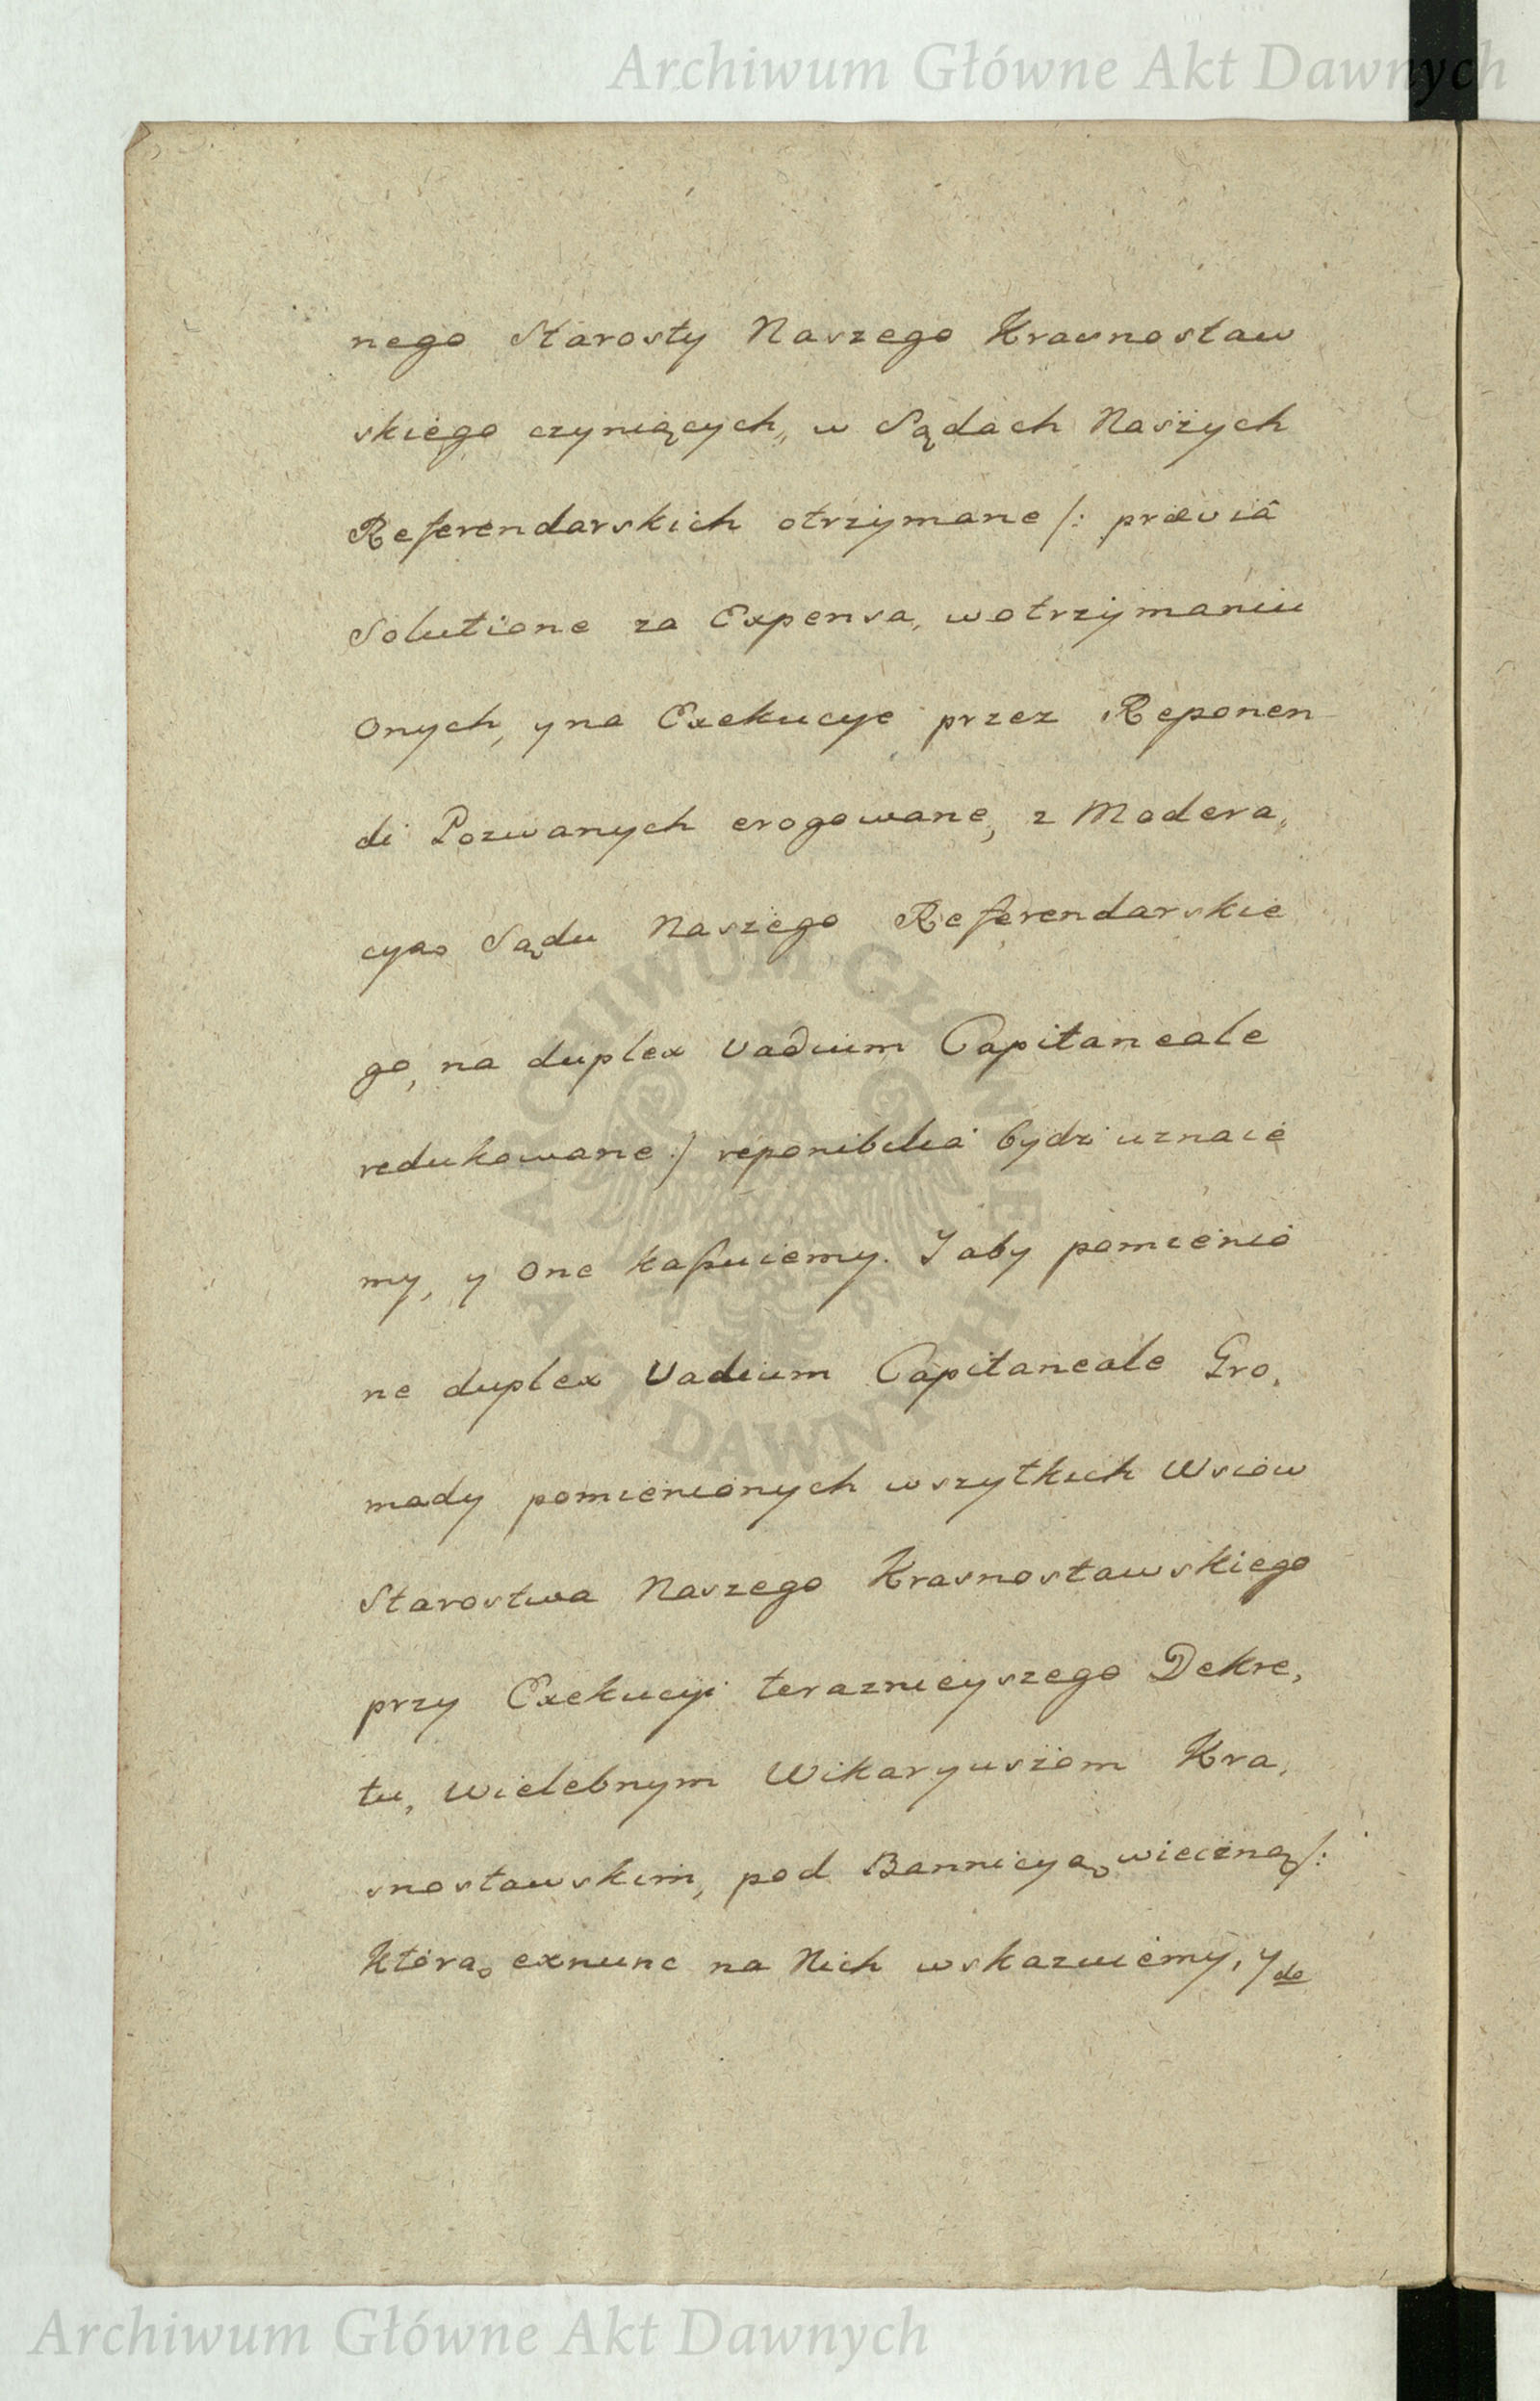 Archiwum Główne Akt Dawnych
nego Starosty Naszego Krasnostaw
skiego czyniących,, w Sądach Naszych
Referendarskich otrzymane /: præviâ
Solutione za Expensa, wotrzymaniu
Onych, y na Exekucye przez Reponen
di Pozwanych erogowane, z Modera,,
cyą Sądu Naszego Referendarskie
go, na duplex Vadium Capitaneale
redukowane :/ reponibilia bydź uznaie
my, y One kaſsuiemy. I aby pomienio
ne duplex Vadium Capitaneale Gro,
mady pomienionych wszytkich Wsiow
Starostwa Naszego Krasnostawskiego
przy Exekucyi teraznieyszego Dekre,
tu, Wielebnym Wikaryuszom Kra,
snostawskim, pod Bannicyą wieczną /:
Którą exnunc na Nich wskazuiemy, y do
ARCHIWUM GŁÓWNE AKT DAWNYCH
Archiwum Główne Akt Dawnych